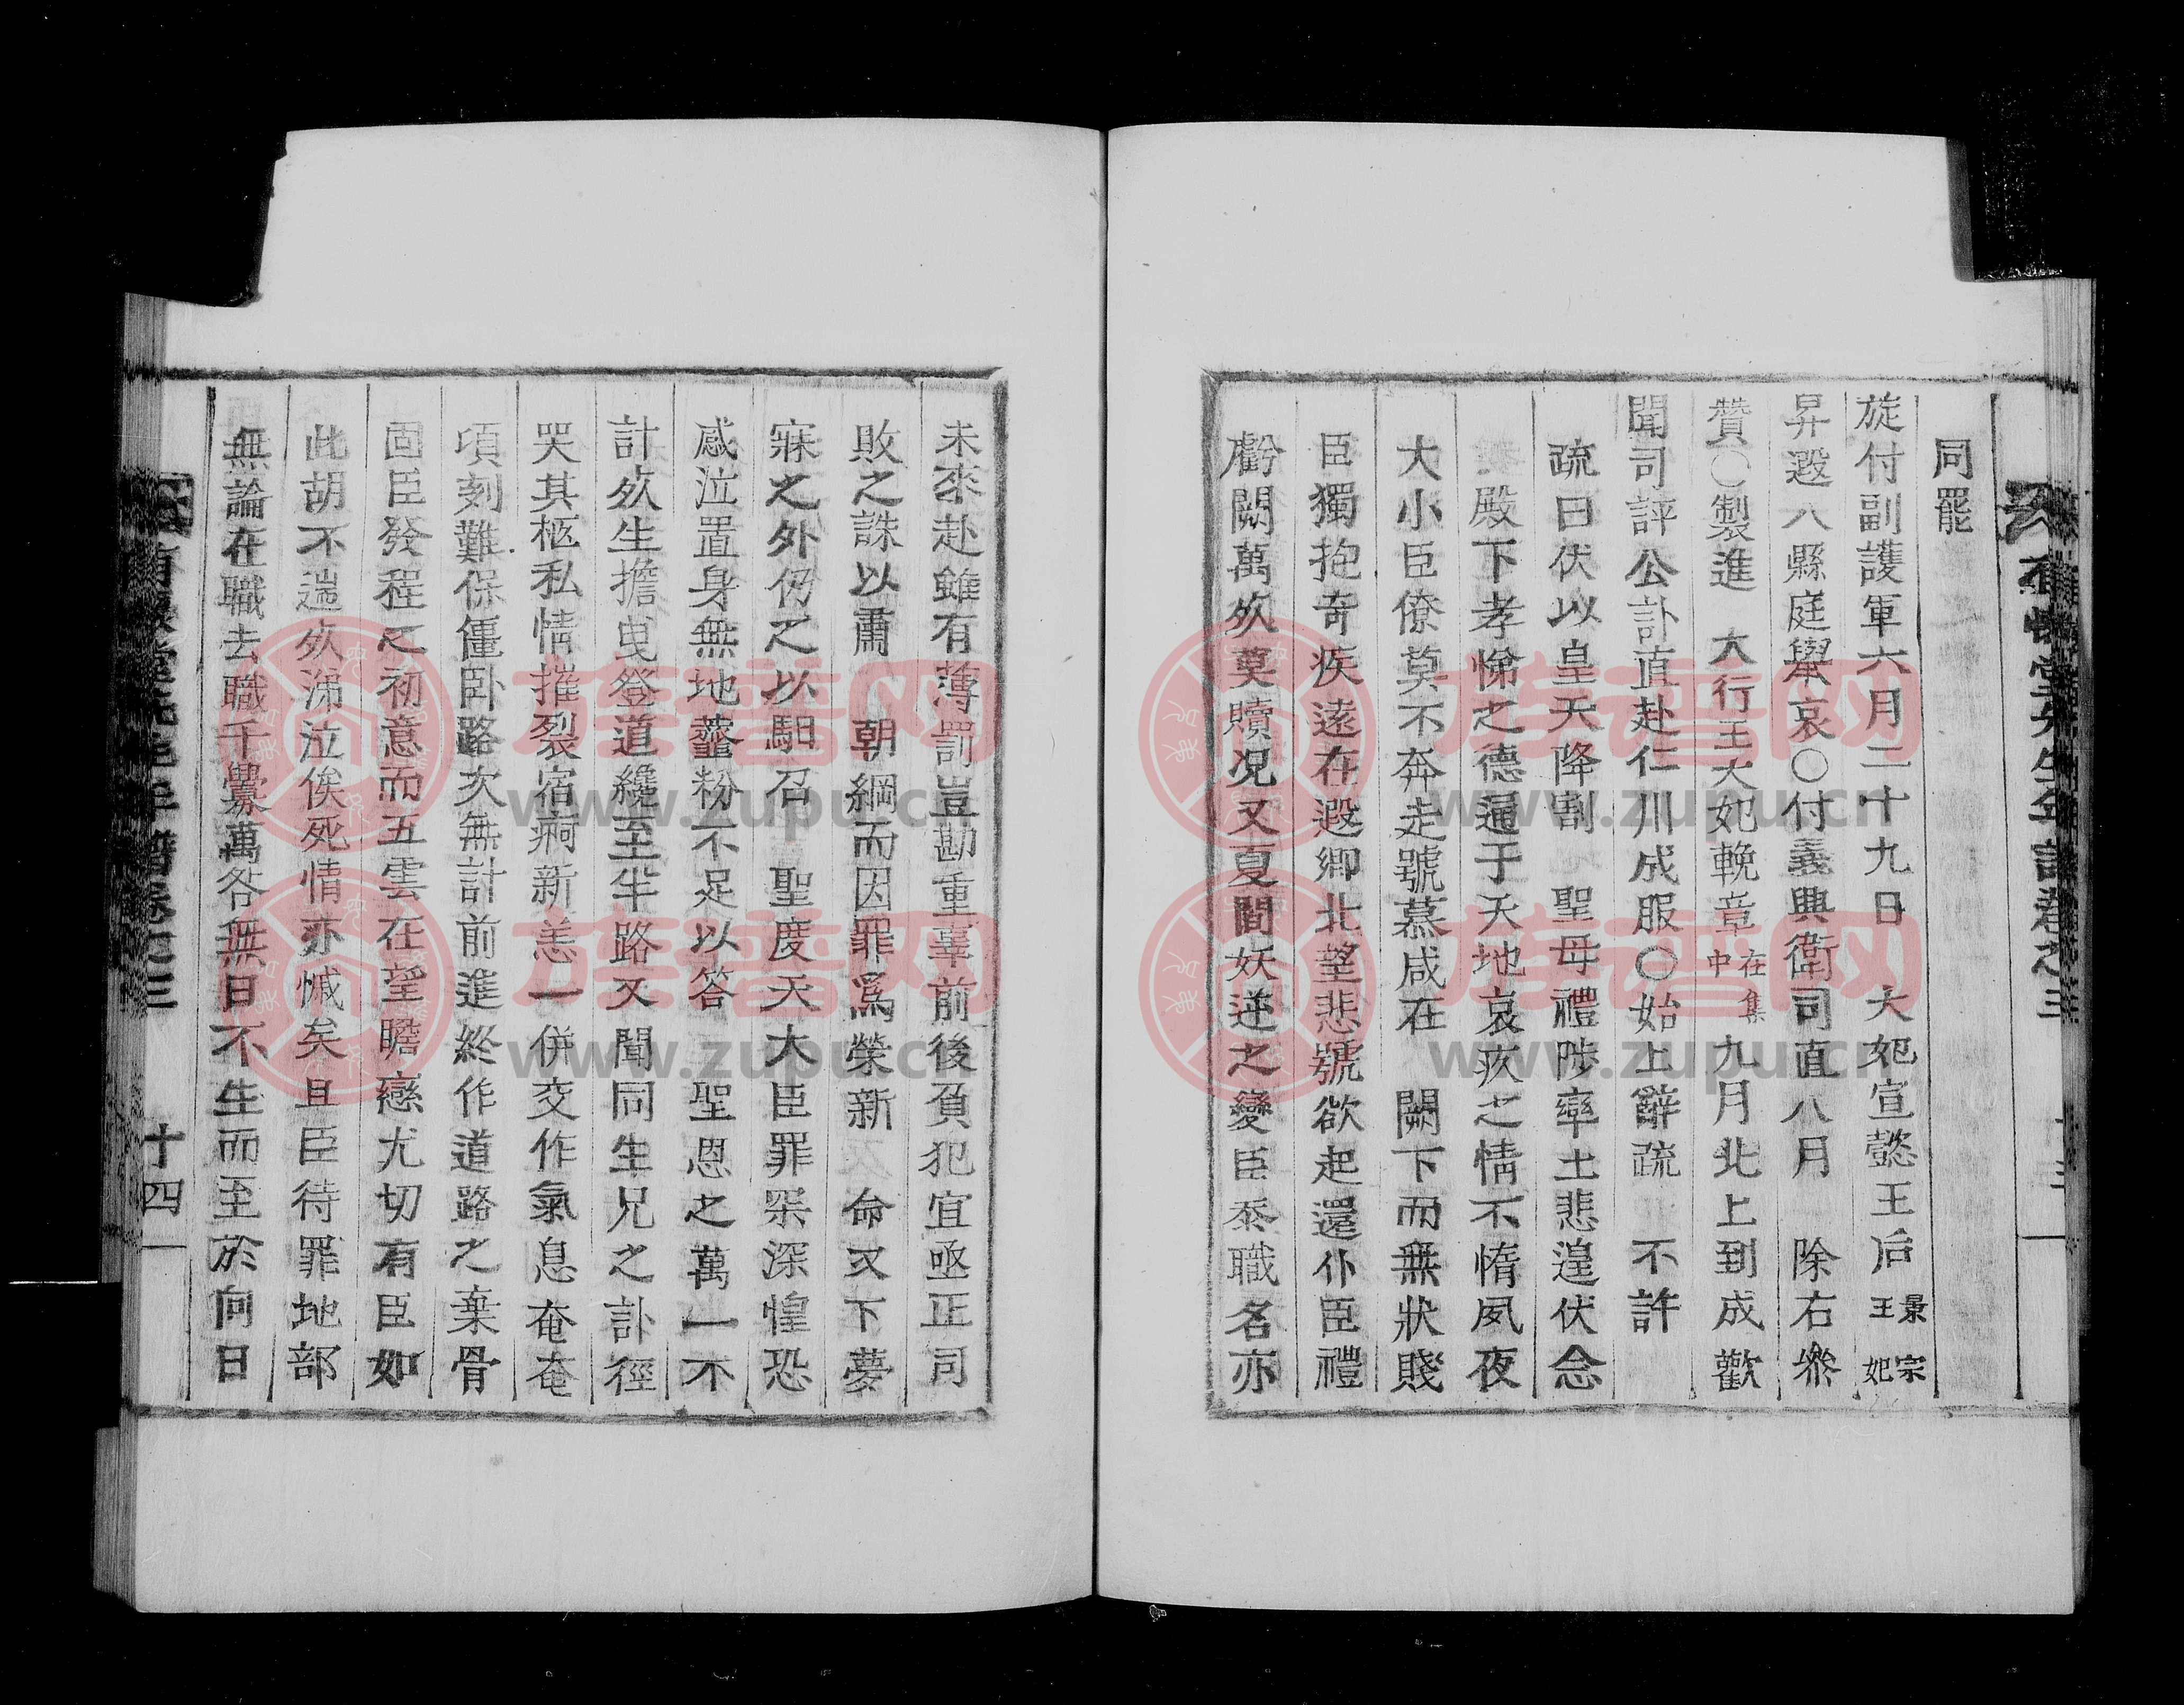 同罷
旋付副護軍六月二十九日　大妃宣懿王后景宗王妃
昇遐八縣庭擧哀○付義興衛司直八月　除右參
贊○製進　大行王大妃輓章在集中九月北上到成歡
聞司評公訃直赴仁川成服○始上辭疏　不許
疏曰伏以皇天降割　聖母禮陟率土悲遑伏念
殿下孝悌之德通于天地哀疚之情不惰夙夜
大小臣僚莫不奔走號慕咸在　闕下而無狀賤
臣獨抱奇疾遠在遐鄉北望悲號欲起還仆臣禮
虧闕萬死莫贖况又夏間妖逆之變臣忝職名亦
未來赴雖有薄罰豈勘重辜前後負犯宜亟正司
敗之誅以肅　朝綱而因罪爲榮新　命又下夢
寐之外仍之以馹召　聖度天大臣罪罙深惶恐
感泣置身無地虀粉不足以答　聖恩之萬一不
計死生擔曳登道纔至半路又聞同生兄之訃徑
哭其柩私情摧裂宿痾新恙一併交作氣息奄奄
頃刻難保僵臥路次無計前進終作道路之棄骨
固臣發程之初意而五雲在望瞻戀尤切有臣如
此胡不遄死涕泣俟死情亦慽矣且臣待罪地部
無論在職去職千釁萬咎無日不生而至於向日
十四